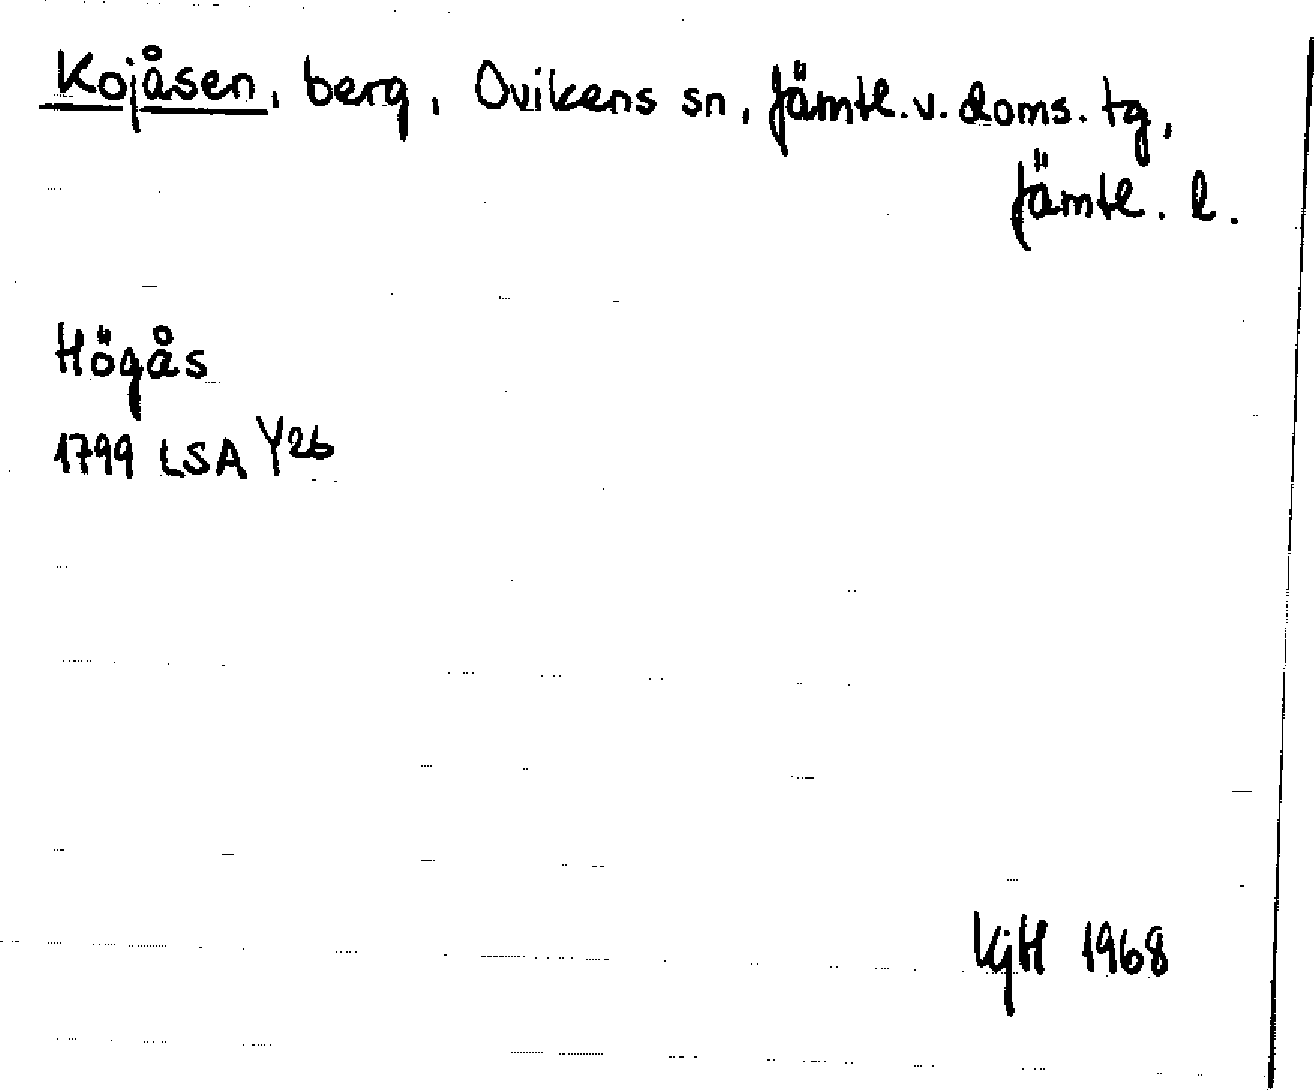 Kojåsen, berg, Ovikens sn, Jämtl. v. doms. tg,
Jämtl. l.
Högås
1799 LSA Y26
KjH 1968